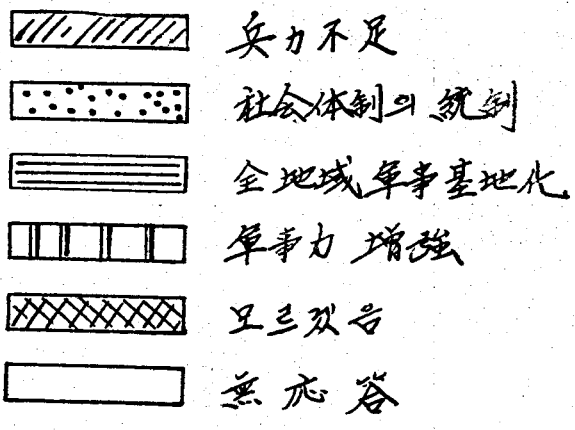 兵力不足
社会体制의 統制
全地域軍事基地化
軍事力 增強
모르겠음
無応答